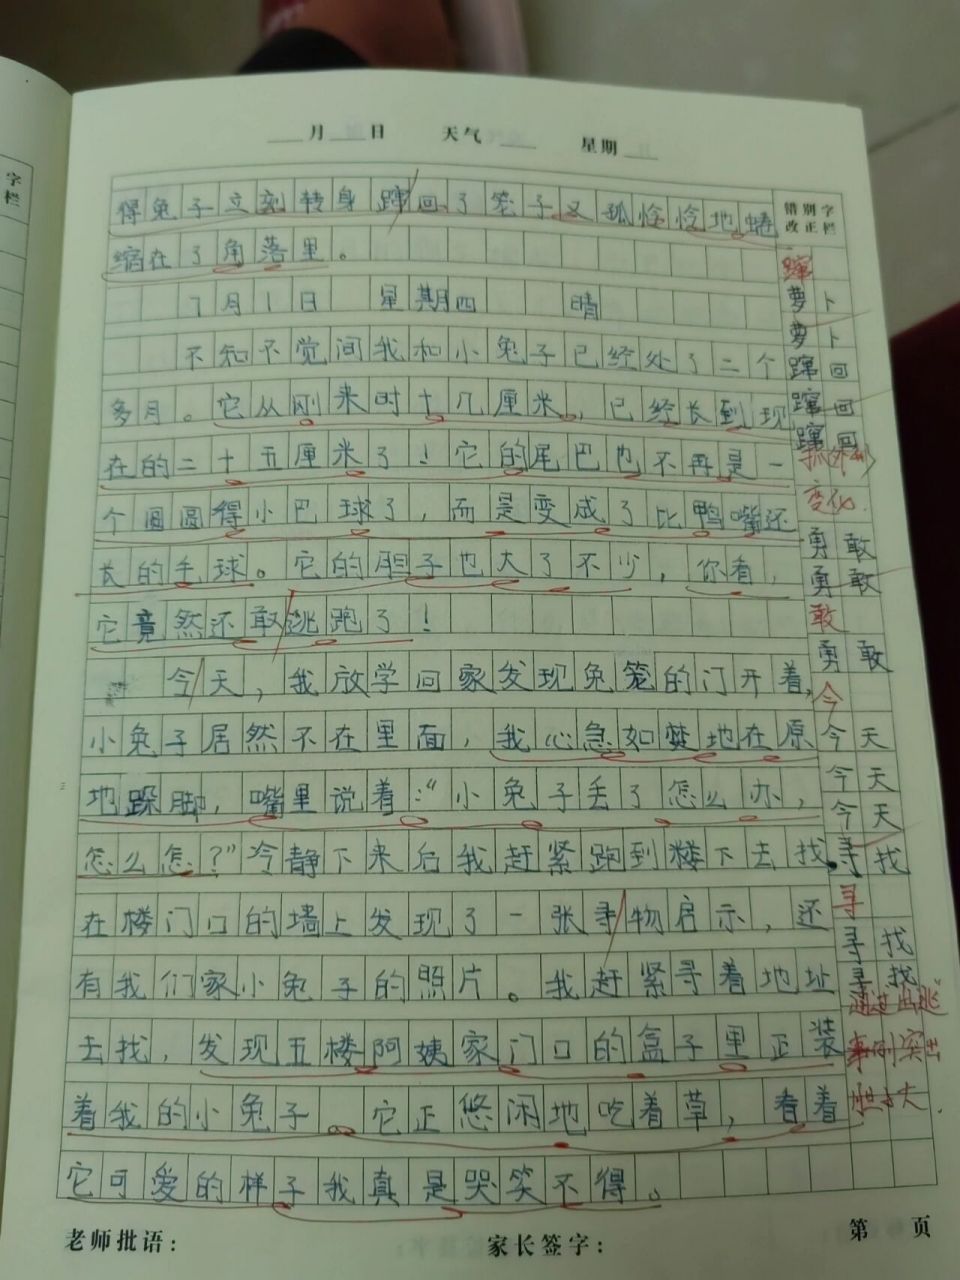 月 日 天气 星期
字栏
错别字改正栏
得兔子立刻转身蹿回了笼子又孤怜怜地蜷
缩在了角落里。
7月1日 星期四 晴
不知不觉间我和小兔子已经处了二个
多月。它从刚来时十几厘米,已经长到现
在的二十五厘米了!它的尾巴也不再是一
个圆圆得小巴球了,而是变成了比鸭嘴还
长的毛球。它的胆子也大了不少,你看,
它竟然还敢逃跑了!
今天,我放学回家发现兔笼的门开着,
小兔子居然不在里面,我心急如焚地在原
地跺脚,嘴里说着:“小兔子丢了怎么办,
怎么怎?”冷静下来后我赶紧跑到楼下去找,
在楼门口的墙上发现了一张寻物启示,还
有我们家小兔子的照片。我赶紧寻着地址
去找,发现五楼阿姨家门口的盒子里正装
着我的小兔子。它正悠闲地吃着草,看着
它可爱的样子我真是哭笑不得。
蹿
萝卜
萝卜
蹿回
蹿回
蹿回
变化
勇敢
勇敢
敢
勇敢
今
今天
今天
今天
寻找
寻
寻找
寻找
通过出逃
事例突出
胆子大
老师批语: 家长签字: 第 页